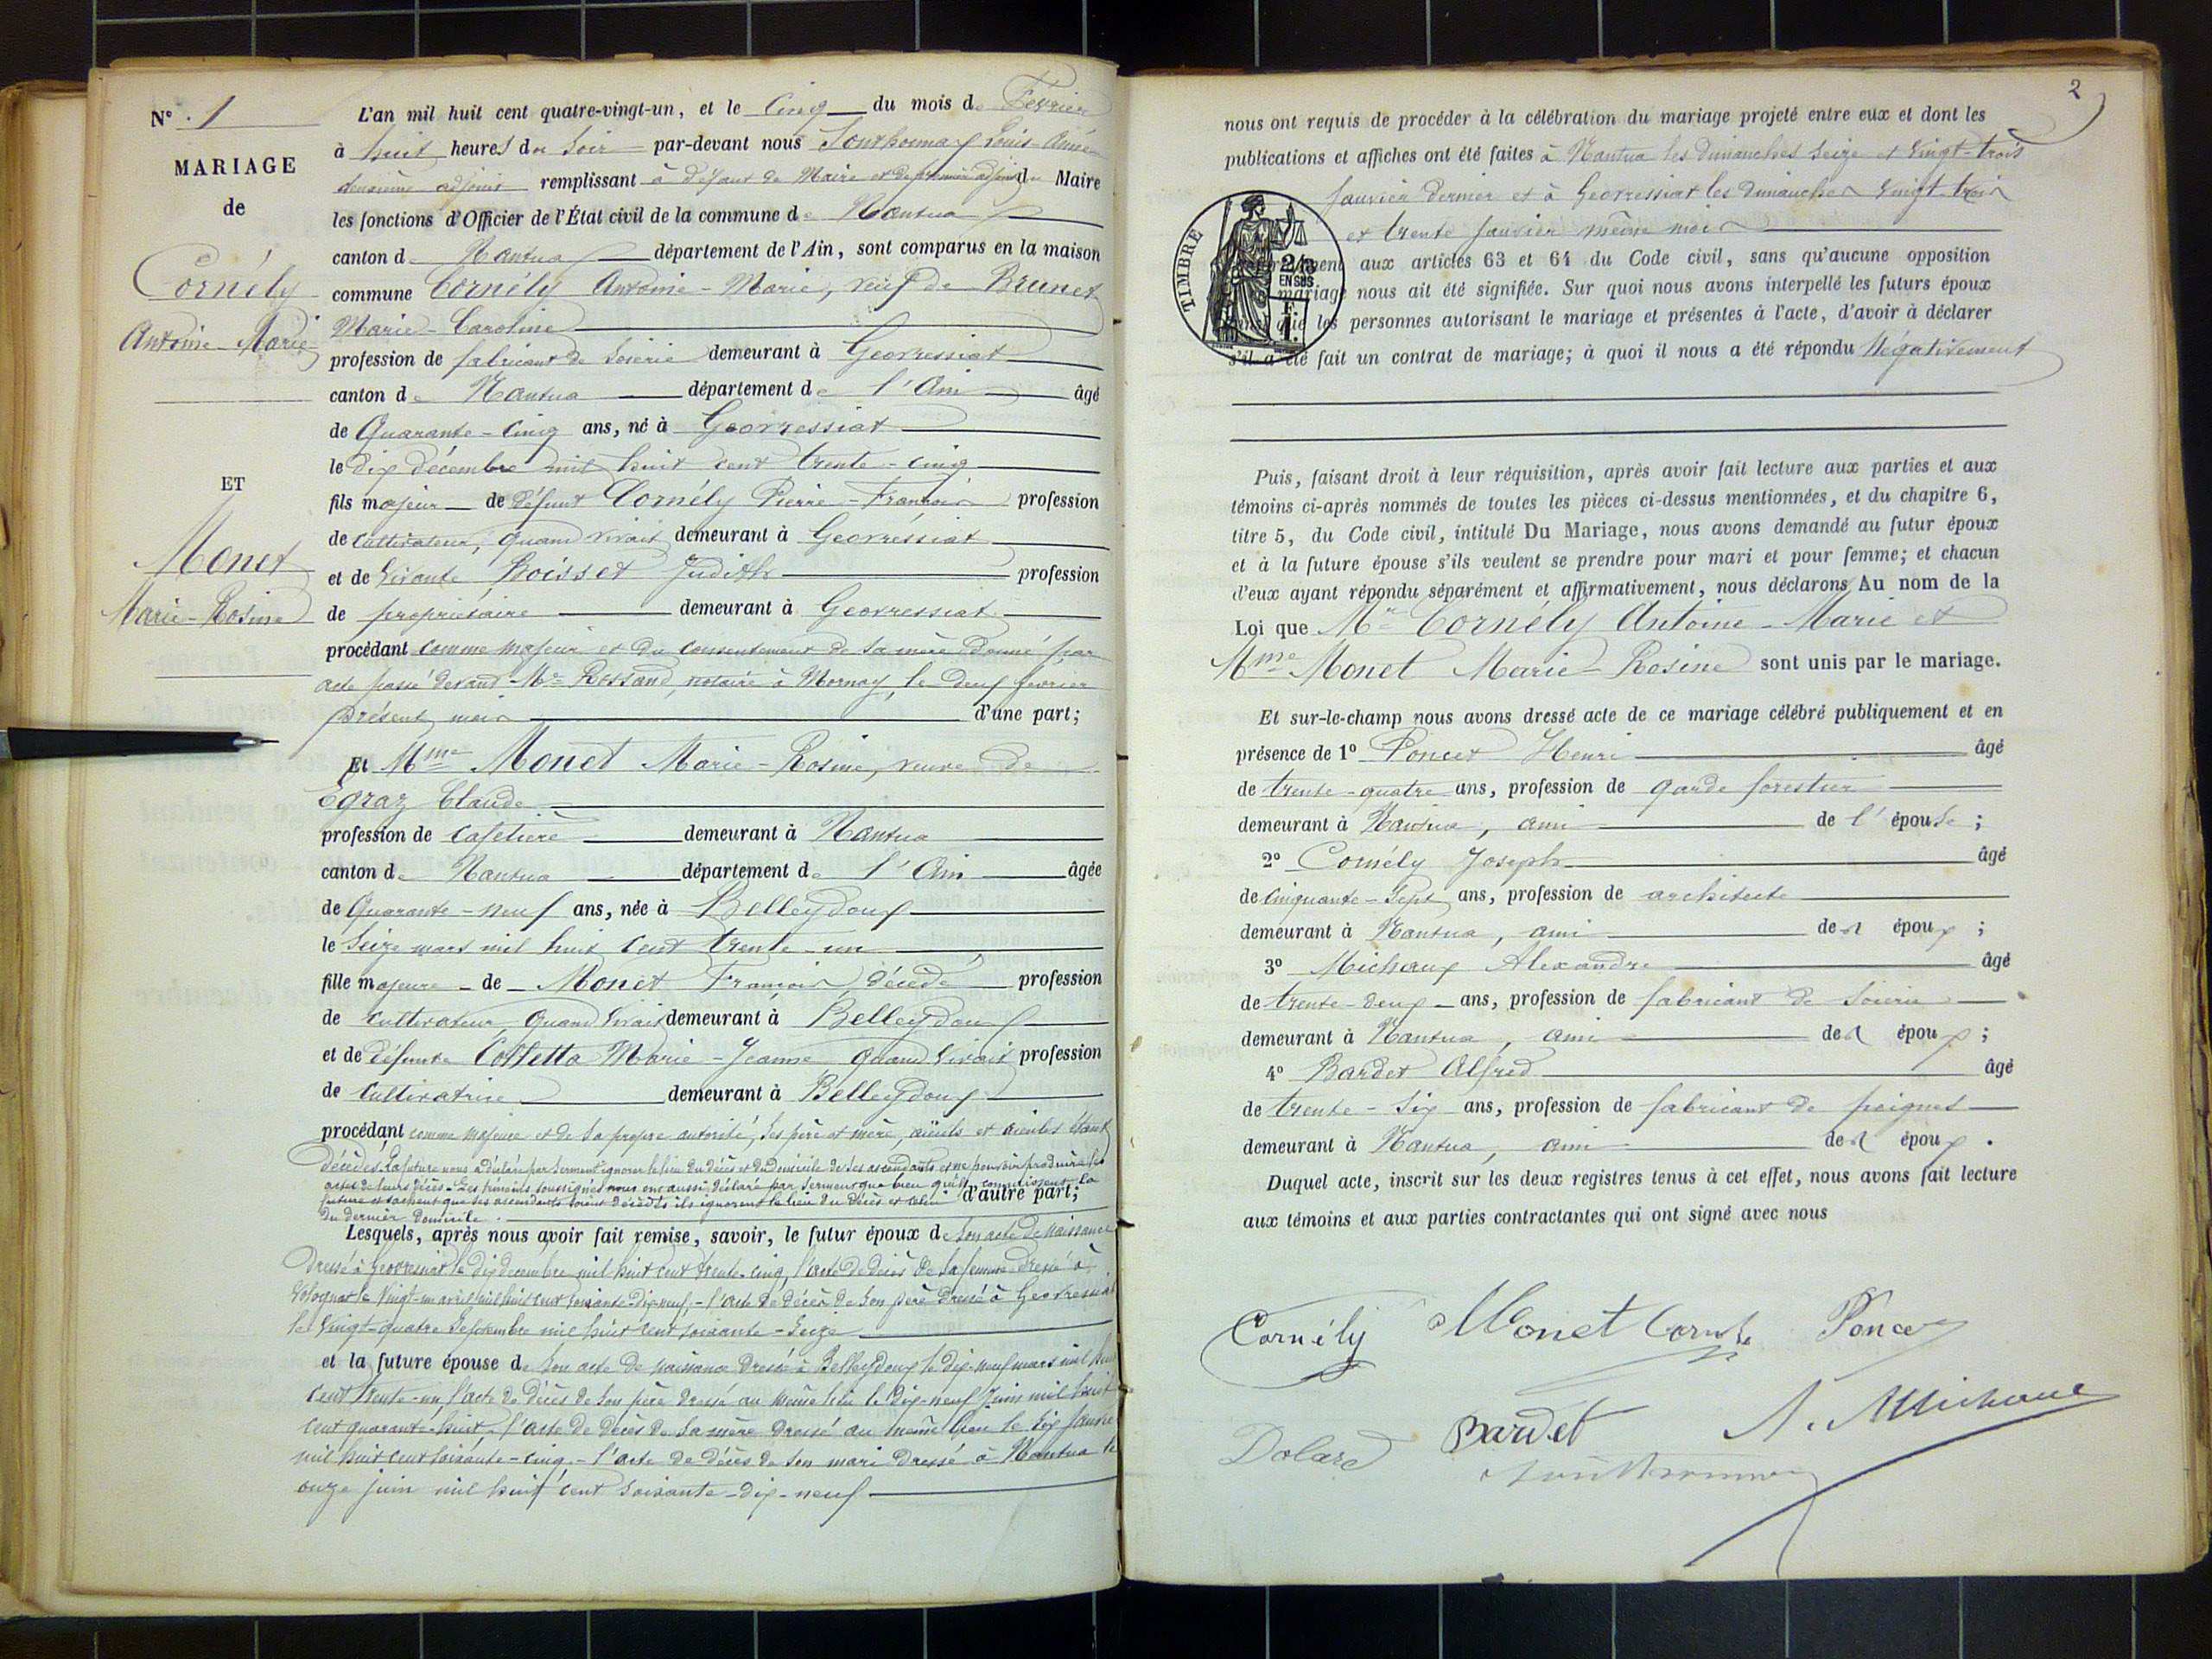 N° 1
MARIAGE
de
Cornély
Antoine-Marie
ET
Monet
Marie-Rosine
L'an mil huit cent quatre-vingt-un, et le Cinq du mois de Février
à huit heures du Soir par-devant nous Southonnax Louis Aimé
deuxième adjoint remplissant à défaut de Maire et de premier adjoint de Maire
les fonctions d'Officier de l'État civil de la commune de Nantua
canton de Nantua département de l'Ain, sont comparus en la maison
commune Cornély Antoine-Marie, veuf de Brunet
Marie-Caroline
profession de fabricant de Soierie demeurant à Geovressiat
canton de Nantua département de l'Ain âgé
de Quarante-Cinq ans, né à Geovressiat
le dix décembre mil huit cent trente-cinq
fils majeur de défunt Cornély Pierre-François profession
de Cultivateur, quand vivait demeurant à Geovressiat
et de vivante Boisset Judith profession
de propriétaire demeurant à Geovressiat
procédant comme majeur et du consentement de sa mère donné par
acte passé devant Me Rossand, notaire à Mornay, le deux février
présent mois d'une part;
Et Mme Monet Marie-Rosine, veuve de
Egraz Claude
profession de Cafetière demeurant à Nantua
canton de Nantua département de l'Ain âgée
de Quarante-neuf ans, née à Belleydoux
le Seize mars mil huit cent trente-un
fille majeure de Monet François décédé profession
de Cultivateur quand vivait demeurant à Belleydoux
et de défunte Colletta Marie-Jeanne quand vivait profession
de Cultivatrice demeurant à Belleydoux
procédant comme majeure et de sa propre autorité, ses père et mère, aïeuls et aïeules étant
décédés. La future nous a déclaré par serment ignorer le lieu du décès et du domicile de ses ascendants et ne pouvoir produire les
actes de leurs décès. Les témoins soussignés nous ont aussi déclaré par serment que bien qu'ils connaissent la
future et sachent que ses ascendants soient décédés ils ignorent le lieu du décès et celui d'autre part;
du dernier domicile.
Lesquels, après nous avoir fait remise, savoir, le futur époux de Son acte de Naissance
dressé à Geovressiat le dix décembre mil huit cent trente-cinq, l'acte de décès de sa femme dressé à
Volognat le Vingt-un avril mil huit cent soixante-dix-neuf, - l'acte de décès de son père dressé à Geovressiat
le Vingt-quatre Septembre mil huit cent soixante-Seize
et la future épouse de Son acte de naissance dressé à Belleydoux le dix-neuf mars mil huit
cent trente-un, l'acte de décès de son père dressé au même lieu le dix-neuf Juin mil huit
cent quarante-huit - l'acte de décès de sa mère dressé au même lieu le Six Janvier
mil huit cent soixante-cinq - l'acte de décès de son mari dressé à Nantua le
onze juin mil huit cent soixante-dix-neuf
2
nous ont requis de procéder à la célébration du mariage projeté entre eux et dont les
publications et affiches ont été faites à Nantua les dimanches Seize et Vingt-trois
Janvier dernier et à Geovressiat les dimanches Vingt-trois
et trente Janvier même mois
TIMBRE 2/10 EN SUS
aux articles 63 et 64 du Code civil, sans qu'aucune opposition
mariage nous ait été signifiée. Sur quoi nous avons interpellé les futurs époux
que les personnes autorisant le mariage et présentes à l'acte, d'avoir à déclarer
s'il a été fait un contrat de mariage; à quoi il nous a été répondu Négativement
Puis, faisant droit à leur réquisition, après avoir fait lecture aux parties et aux
témoins ci-après nommés de toutes les pièces ci-dessus mentionnées, et du chapitre 6,
titre 5, du Code civil, intitulé Du Mariage, nous avons demandé au futur époux
et à la future épouse s'ils veulent se prendre pour mari et pour femme; et chacun
d'eux ayant répondu séparément et affirmativement, nous déclarons Au nom de la
Loi que Mr Cornély Antoine-Marie et
Mme Monet Marie-Rosine sont unis par le mariage.
Et sur-le-champ nous avons dressé acte de ce mariage célébré publiquement et en
présence de 1° Poncet Henri âgé
de trente-quatre ans, profession de garde forestier
demeurant à Nantua, ami de l'épouse;
2° Cornély Joseph âgé
de Cinquante-Sept ans, profession de architecte
demeurant à Nantua, ami des époux;
3° Michaux Alexandre âgé
de trente-deux ans, profession de fabricant de Soierie
demeurant à Nantua, ami des époux;
4° Bardet Alfred âgé
de trente-six ans, profession de fabricant de peignes
demeurant à Nantua, ami des époux.
Duquel acte, inscrit sur les deux registres tenus à cet effet, nous avons fait lecture
aux témoins et aux parties contractantes qui ont signé avec nous
Cornély Monet Poncet
Dolard Bardet A. Michaux